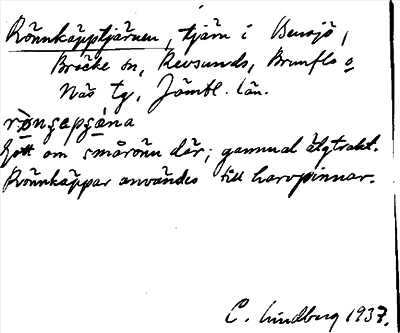 Rönnkäpptjärnen, tjärn i Bensjö,
Bräcke sn, Revsunds, Brunflo o
Näs tg, Jämtl. län.
Gott om smårönn där; gammal älgtrakt.
Rönnkäppar användes till harvpinnar.
C. Lindberg 1937.